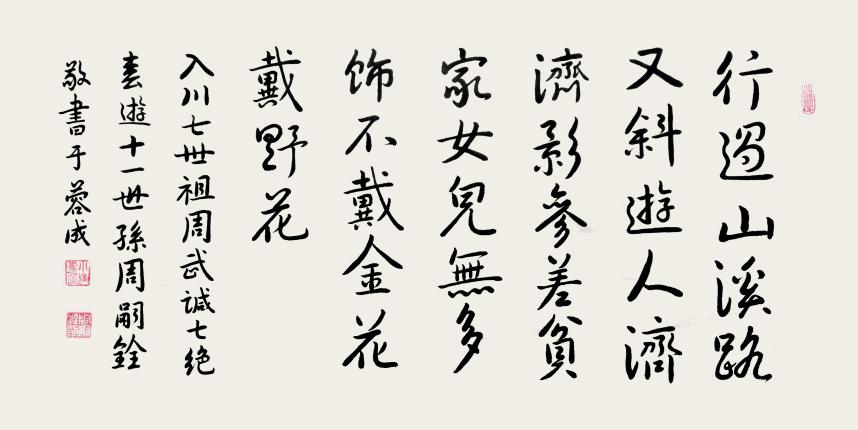 行過山溪路
又斜遊人濟
濟影參差貧
家女兒無多
飾不戴金花
戴野花
入川七世祖周武誠七绝
春遊十一世孫周嗣銓
敬書于蓉城